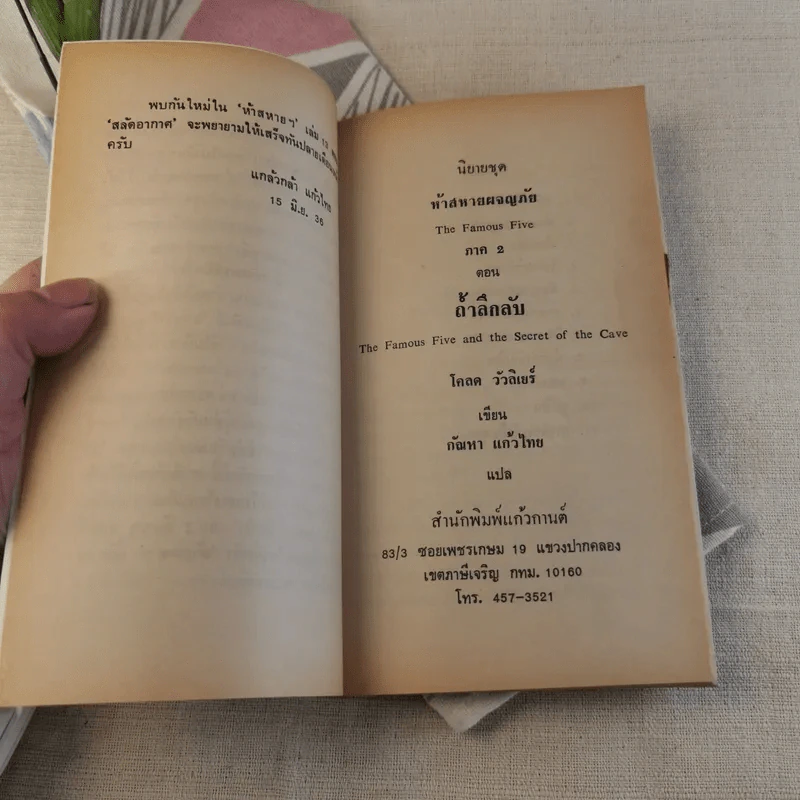 พบกันใหม่ใน 'ห้าสหายฯ' เล่ม 12
'สลัดอากาศ' จะพยายามให้เสร็จทันปลายเดือน
ครับ
แกล้วกล้า แก้วไทย
15 มิ.ย. 36
นิยายชุด
ห้าสหายผจญภัย
The Famous Five
ภาค 2
ตอน
ถ้ำลึกลับ
The Famous Five and the Secret of the Cave
โคลด วัวลิเยร์
เขียน
กัณหา แก้วไทย
แปล
สำนักพิมพ์แก้วกานต์
83/3 ซอยเพชรเกษม 19 แขวงปากคลอง
เขตภาษีเจริญ กทม. 10160
โทร. 457-3521